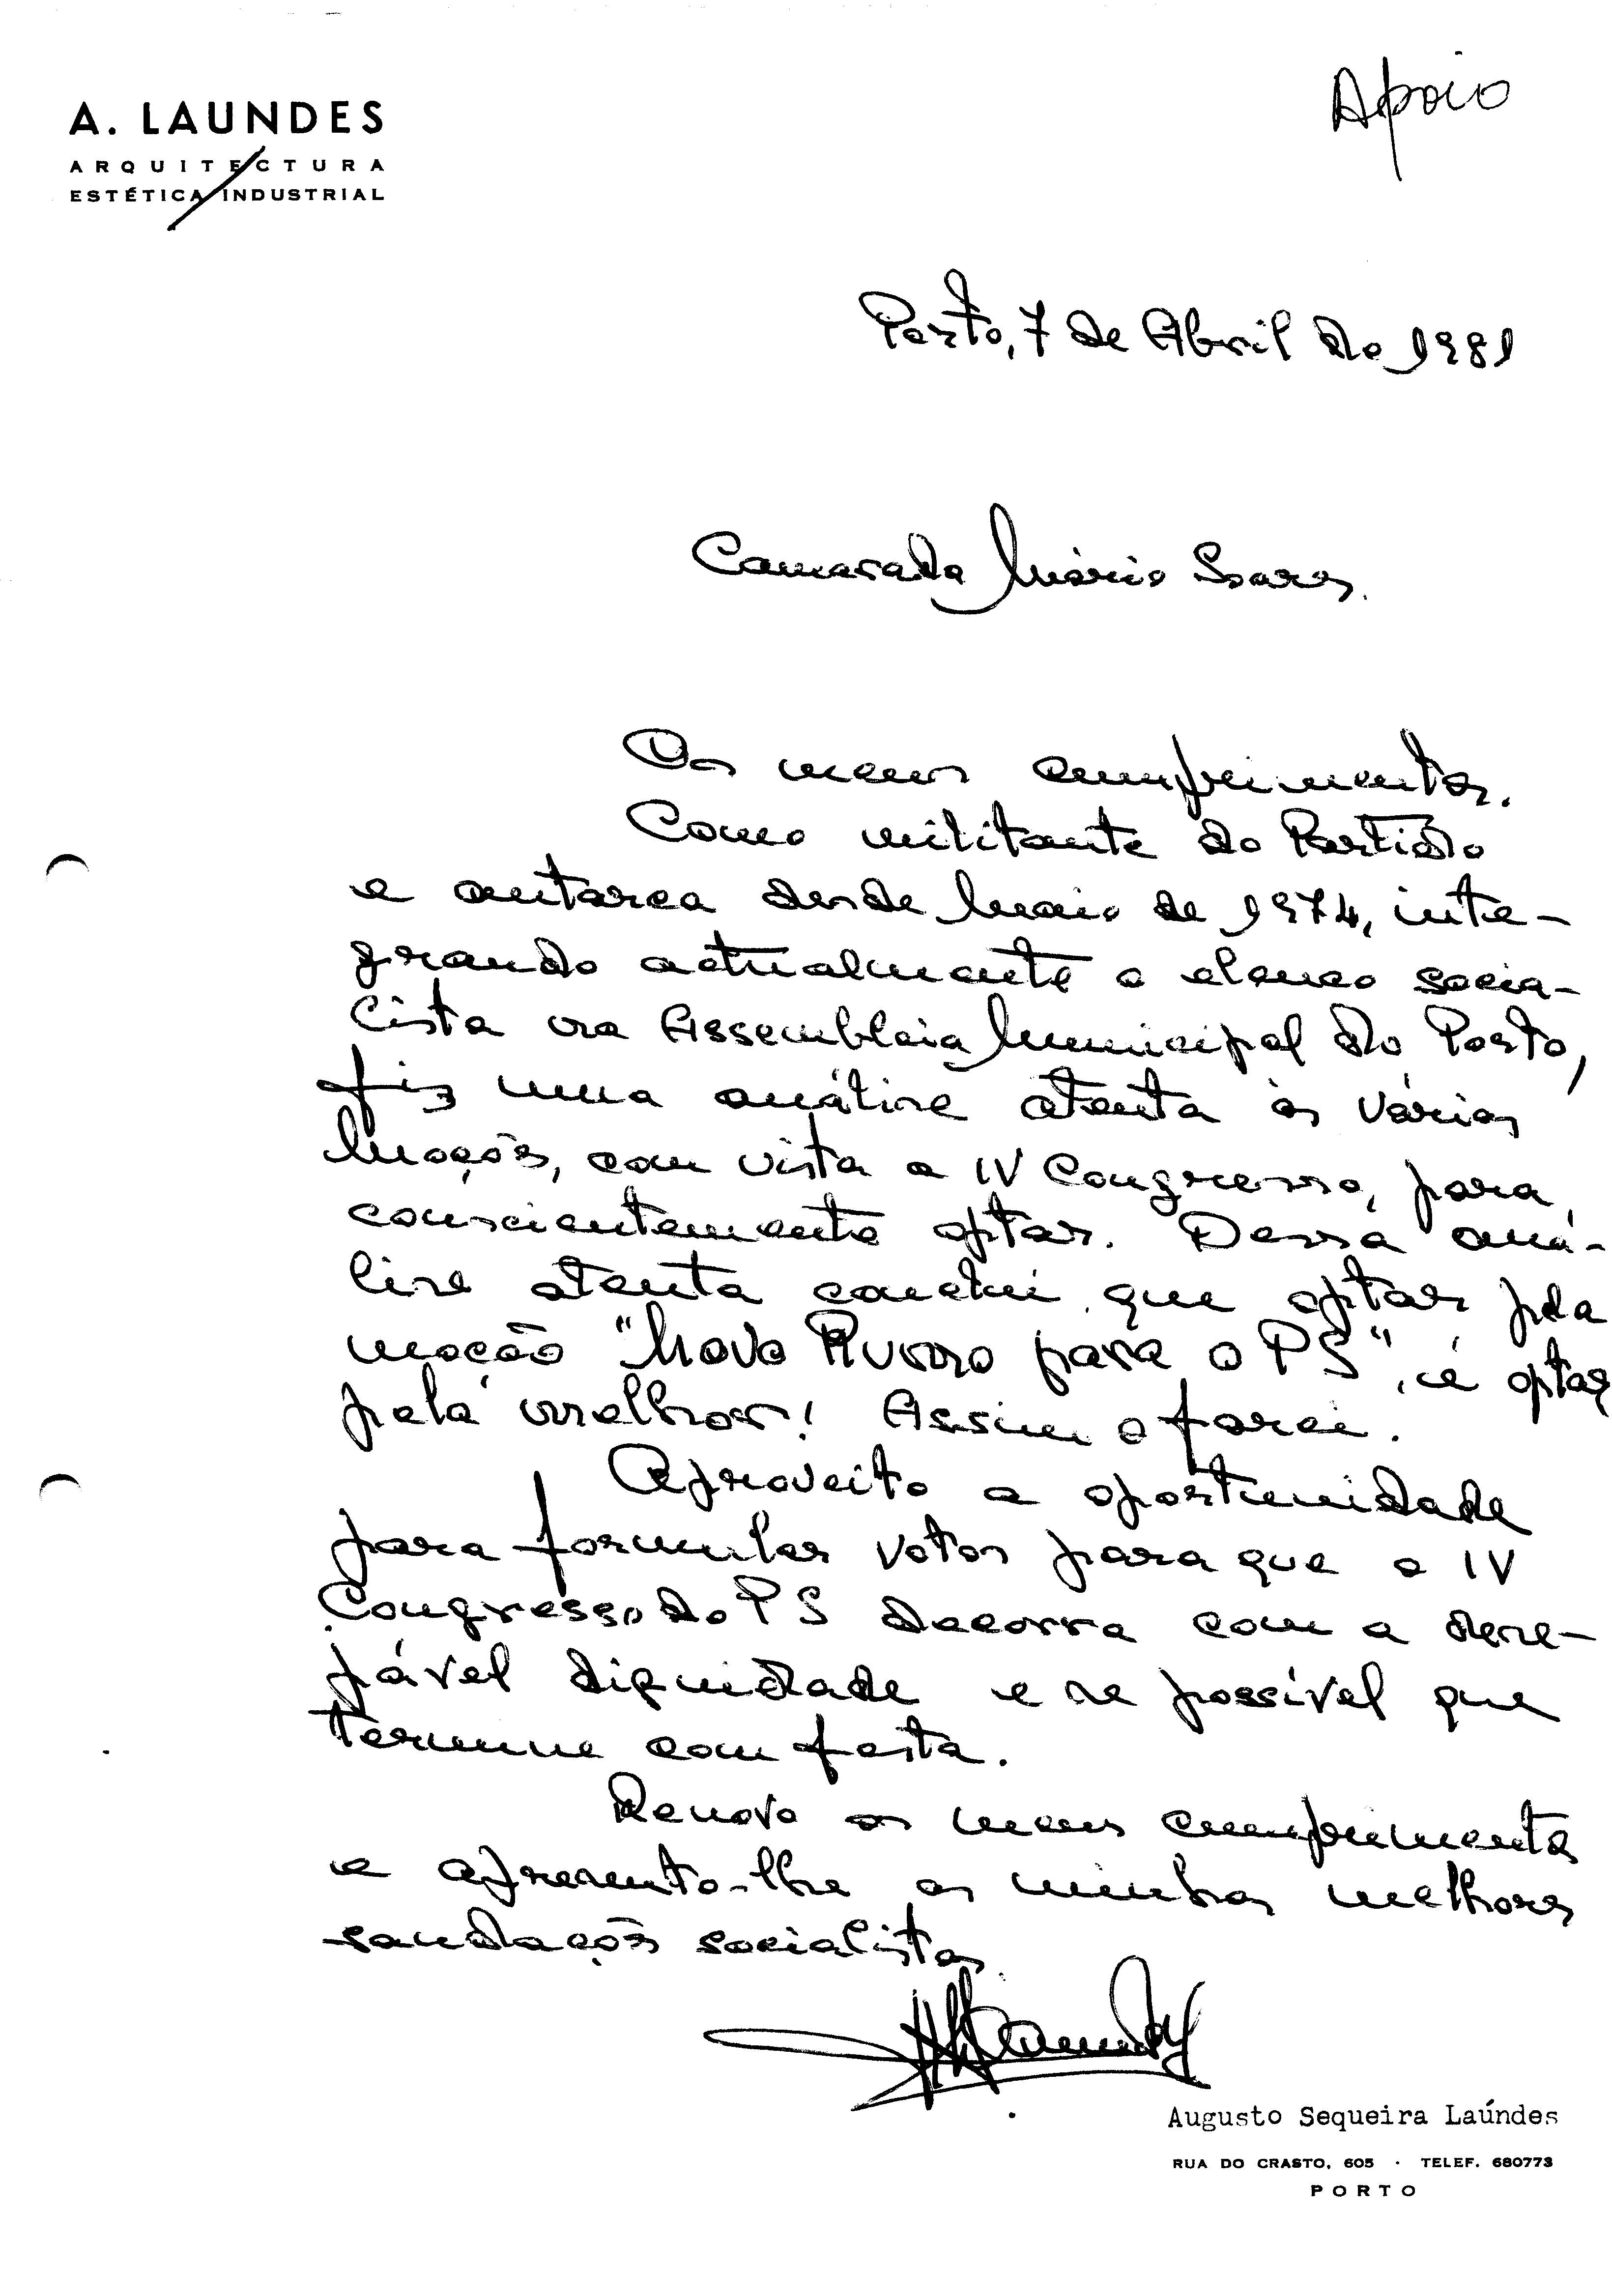 A. LAUNDES
ARQUITECTURA
ESTÉTICA INDUSTRIAL
Apoio
Porto, 7 de Abril de 1981
Camarada Mário Soares.
Os meus cumprimentos.
Como militante do Partido
e autarca desde Maio de 1974, inte-
grando actualmente o elenco socia-
lista na Assembleia Municipal do Porto,
fiz uma análise atenta às várias
Moções, com vista o IV Congresso, para,
conscientemente optar. Dessa aná-
lise atenta conclui que optar pela
moção "Novo Rumo para o PS", é optar
pela melhor! Assim o farei.
Aproveito a oportunidade
para formular votos para que o IV
Congresso do PS decorra com a dese-
jável dignidade e se possível que
termine com festa.
Renovo os meus cumprimentos
e apresento-lhe as minhas melhores
saudações socialistas
Augusto Sequeira Laúndes
RUA DO CRASTO, 605 · TELEF. 680773
PORTO